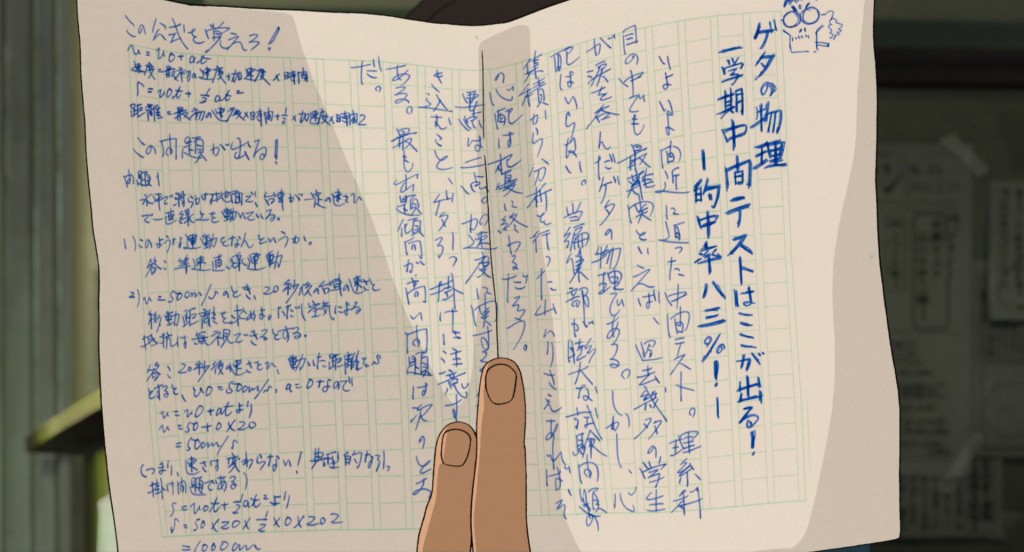 ゲタの物理
一学期中間テストはここが出る!
ー的中率八三%!ー
いよいよ間近に迫った中間テスト。理系科
目の中でも最難関といえば、過去幾多の学生
が涙を呑んだゲタの物理である。しかし、心
配はいらない。当編集部が膨大な試験問題の
集積から分析を行った さえあれば、そ
の心配は杞憂に終わるだろう。
要点は二点。加速度に関する
き込むこと、ゲタ引っ掛けに注意す
ある。最も出題傾向が高い問題は次のとお
だ。
この公式を覚えろ!
u=u0+at
速度=最初の速度+加速度×時間
s=u0t+½at²
距離=最初の速度×時間+½×加速度×時間2
この問題が出る!
問題1
水平で滑らかな地面で、台車が一定の速さで
一直線上を動いている。
1)このような運動をなんというか。
答:等速直線運動
2)u=50cm/sのとき、20秒後の台車の速さと
移動距離を求めよ。ただし空気による
抵抗は無視できるとする。
答:20秒後の速さをu、動いた距離をs
とすると、u0=50cm/s,a=0なので
u=u0+atより
u=50+0×20
=50cm/s
(つまり、速さは変わらない!典型的な引っ
掛け問題である)
s=u0t+½at²より
s=50×20×½×0×202
=1000cm